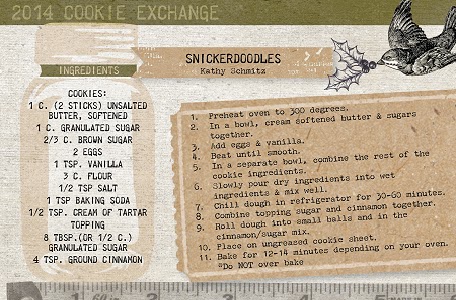 2014 COOKIE EXCHANGE
SNICKERDOODLES
Kathy Schmitz
INGREDIENTS
COOKIES:
1 C. (2 STICKS) UNSALTED
BUTTER, SOFTENED
1 C. GRANULATED SUGAR
2/3 C. BROWN SUGAR
2 EGGS
1 TSP. VANILLA
3 C. FLOUR
1/2 TSP SALT
1 TSP BAKING SODA
1/2 TSP. CREAM OF TARTAR
TOPPING
8 TBSP.(OR 1/2 C.)
GRANULATED SUGAR
4 TSP. GROUND CINNAMON
1. Preheat oven to 300 degrees.
2. In a bowl, cream softened butter & sugars
together.
3. Add eggs & vanilla.
4. Beat until smooth.
5. In a separate bowl, combine the rest of the
cookie ingredients.
6. Slowly pour dry ingredients into wet
ingredients & mix well.
7. Chill dough in refrigerator for 30-60 minutes.
8. Combine topping sugar and cinnamon together.
9. Roll dough into small balls and in the
cinnamon/sugar mix.
10. Place on ungreased cookie sheet.
11. Bake for 12-14 minutes depending on your oven.
*Do NOT over bake